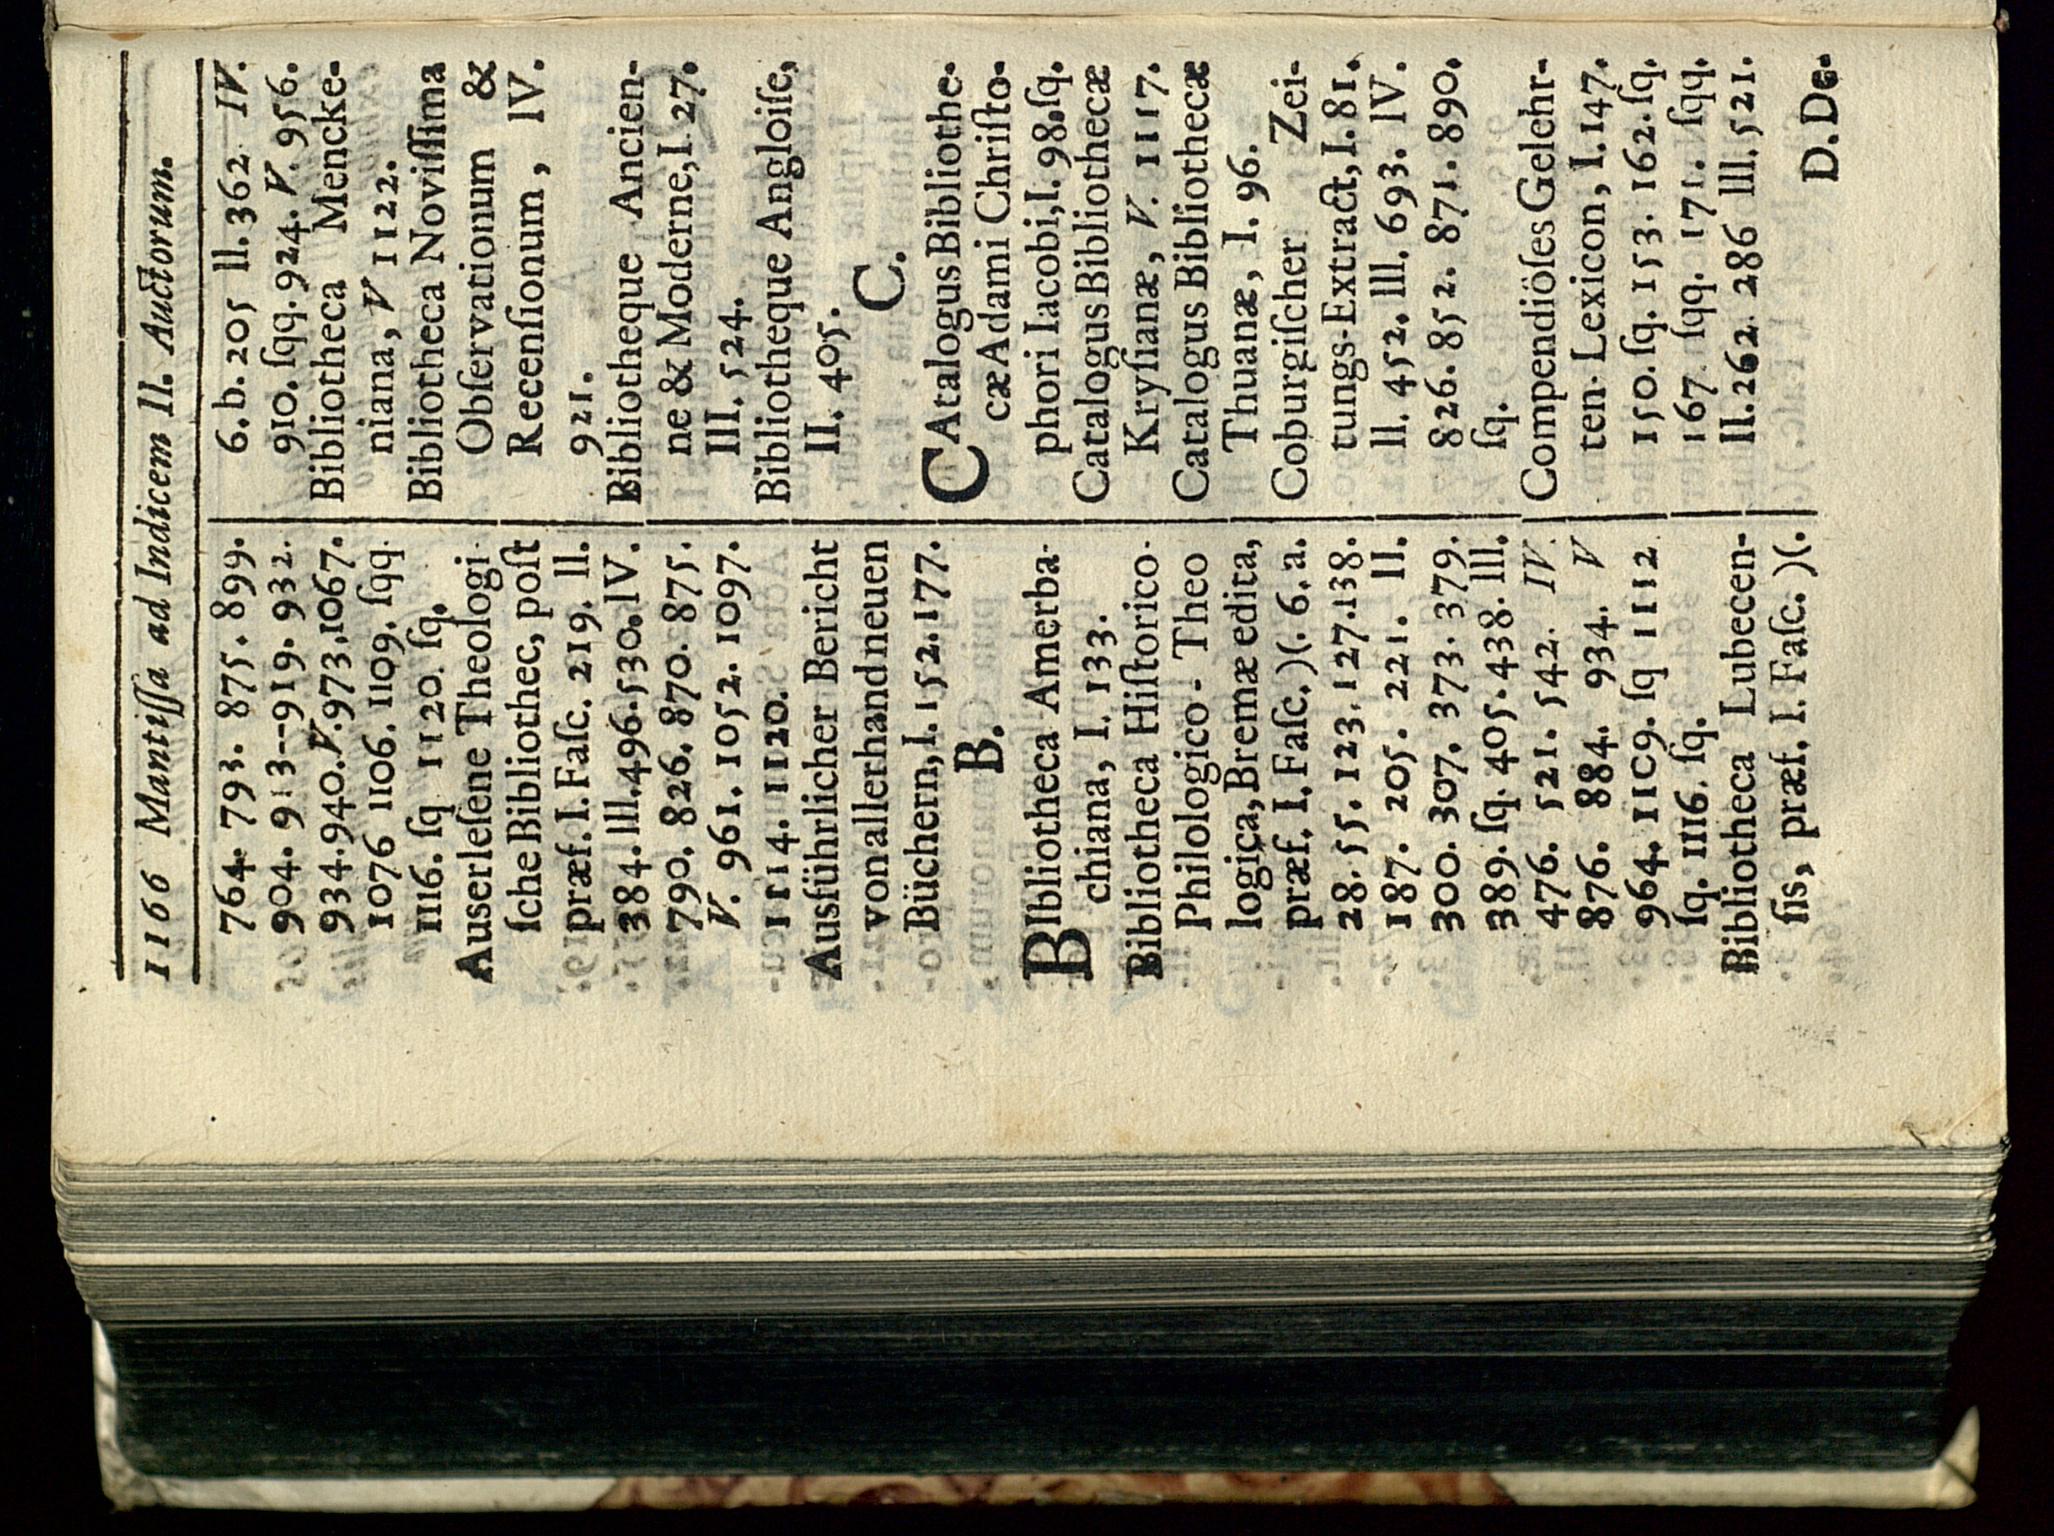 1166 Mantiſſa ad Indicem II. Auctorum.
764. 793. 875. 899.
904. 913--919. 932.
934.940.V.973,1067.
1076 1106. 1109. ſqq.
1116. ſq 1120. ſq.
Auserleſene Theologi-
ſche Bibliothec, poſt
præf. I. Faſc. 219. II.
384. III.496.530. IV.
790. 826. 870. 875.
V. 961. 1052. 1097.
1114. 1120.
Ausführlicher Bericht
von allerhand neuen
Büchern, I. 152. 177.
B.
BIbliotheca Amerba-
chiana, I. 133.
Bibliotheca Hiſtorico-
Philologico- Theo
logica, Bremæ edita,
præf. I. Faſc. )(. 6. a.
28. 55. 123. 127.138.
187. 205. 221. II.
300. 307. 373. 379.
389. ſq. 405. 438. III.
476. 521. 542. IV.
876. 884. 934. V
964. 11C9. ſq 1112
ſq. 1116. ſq.
Bibliotheca Lubecen-
ſis, præf. I. Faſc. )(.
6. b. 205 II. 362 IV.
910. ſqq. 924. V. 956.
Bibliotheca Mencke-
niana, V 1122.
Bibliotheca Noviſſima
Obſervationum &
Recenſionum, IV.
921.
Bibliotheque Ancien-
ne & Moderne, I. 27.
III. 524.
Bibliotheque Angloiſe,
II. 405.
C.
CAtalogus Bibliothe-
cæ Adami Chriſto-
phori Iacobi, I. 98.ſq.
Catalogus Bibliothecæ
Kryſianæ, V. 1117.
Catalogus Bibliothecæ
Thuanæ, I. 96.
Coburgiſcher Zei-
tungs-Extract, I. 81.
II. 452. III. 693. IV.
826. 852. 871. 890.
ſq.
Compendiöſes Gelehr-
ten- Lexicon, I. 147.
150. ſq. 153. 162. ſq.
167. ſqq. 171. ſqq.
II. 262. 286 III. 521.
D. De-